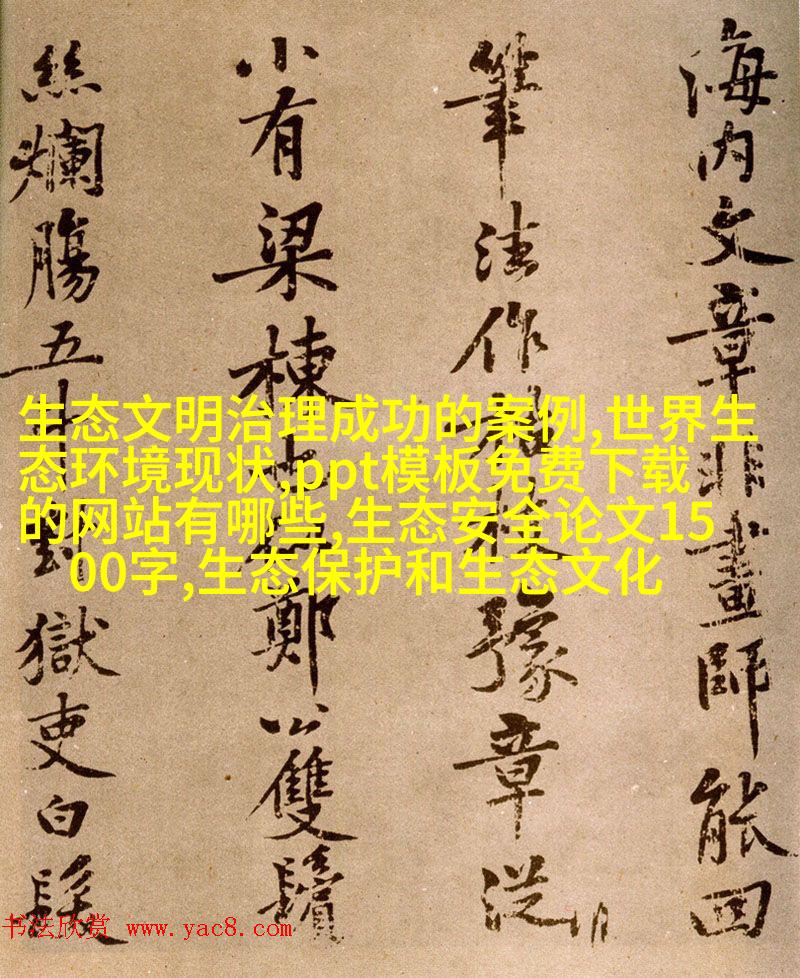 海内文章非畫師能回
筆法作枝豫章從
小有梁棟也鄭公雙鬢
絲爛腸五斗對獄吏白髮
生态文明治理成功的案例,世界生
态环境现状,ppt模板免费下载
的网站有哪些,生态安全论文15
00字,生态保护和生态文化
书法欣赏 www.yac8.com